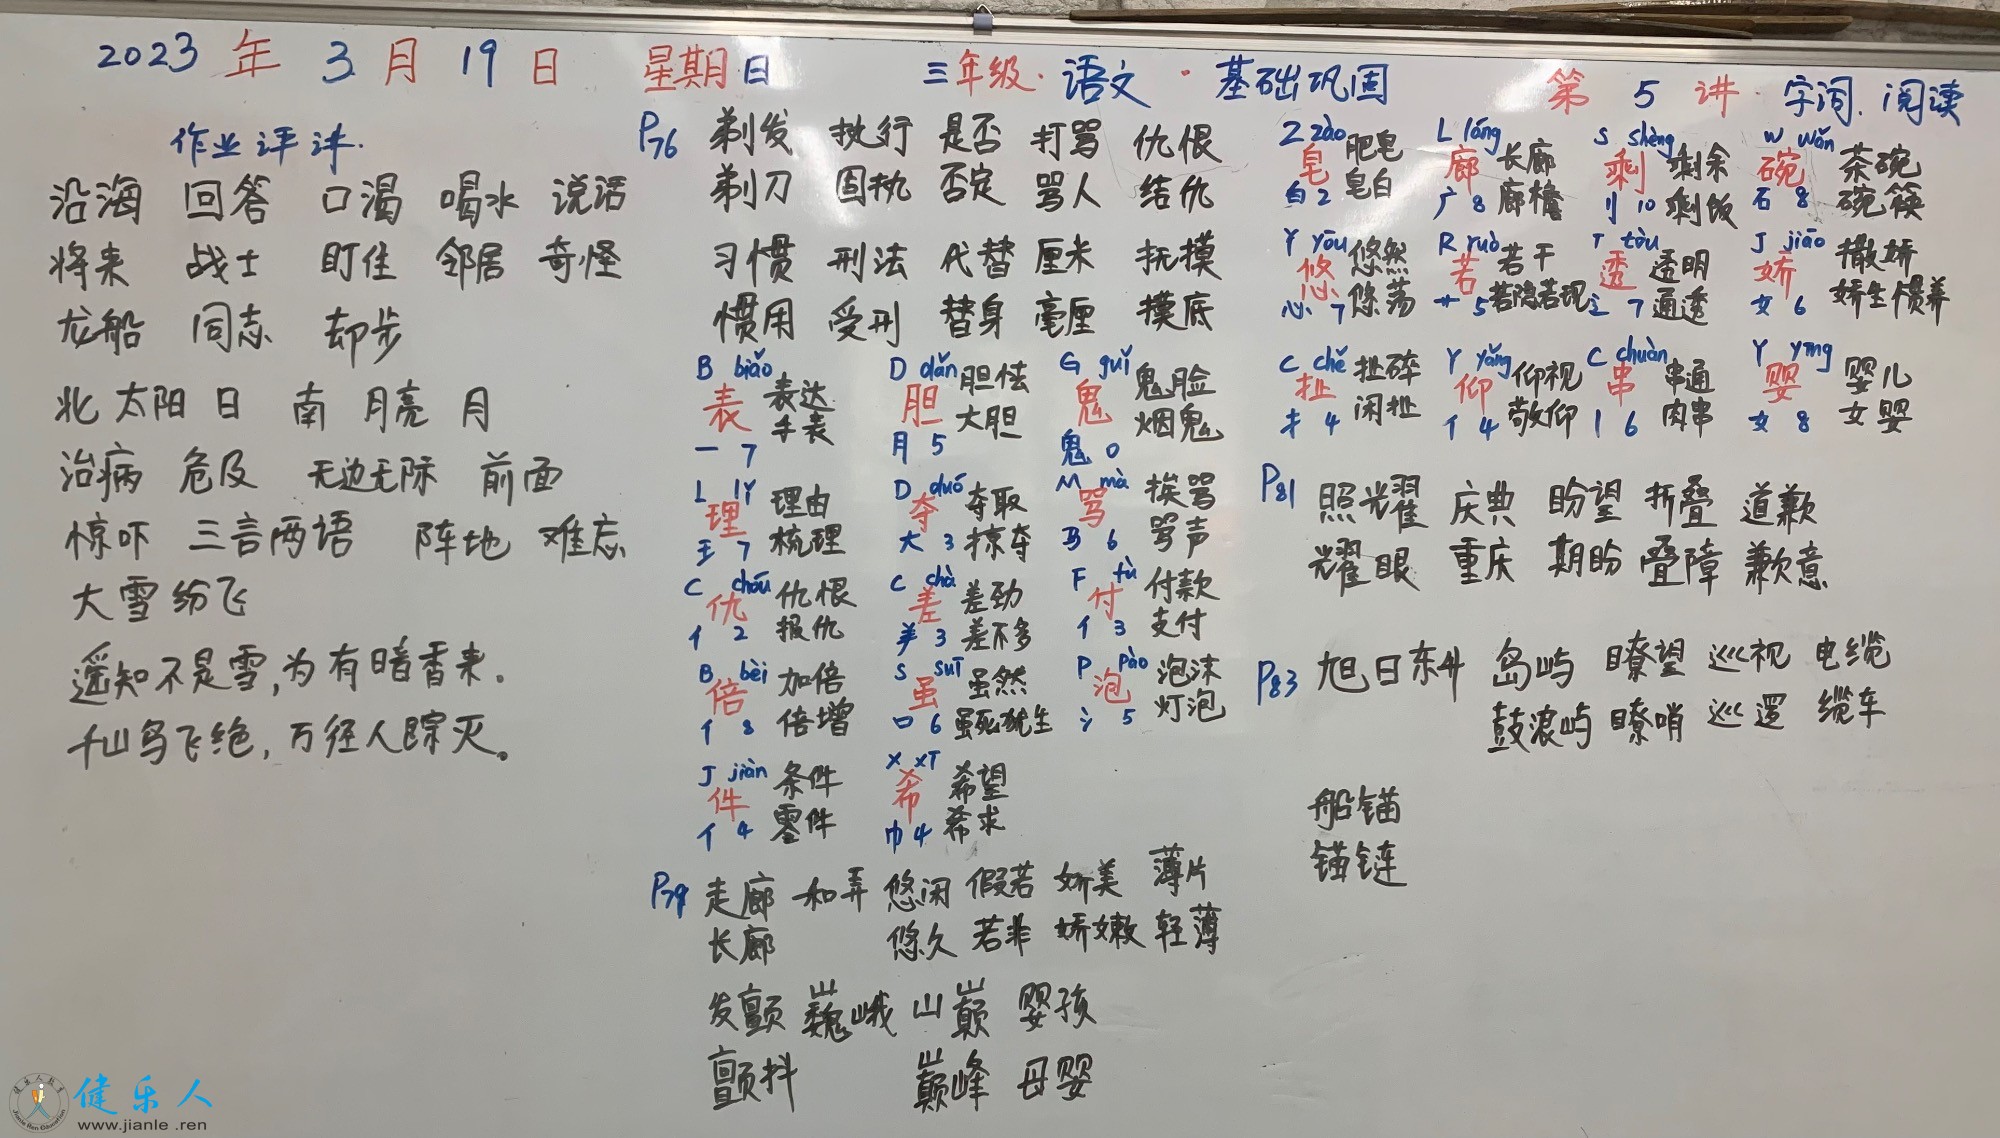 2023年3月19日 星期日 三年级·语文·基础巩固 第5讲·字词.阅读
作业评讲.
沿海 回答 口渴 喝水 说话
将来 战士 盯住 邻居 奇怪
龙船 同志 却步
北 太阳 日 南 月亮 月
治病 危及 无边无际 前面
惊吓 三言两语 阵地 难忘
大雪纷飞
遥知不是雪,为有暗香来。
千山鸟飞绝,万径人踪灭。
P76 剃发 执行 是否 打骂 仇恨
剃刀 固执 否定 骂人 结仇
习惯 刑法 代替 厘米 抚摸
惯用 受刑 替身 毫厘 摸底
B biǎo D dǎn G guǐ
表 表达 胆 胆怯 鬼 鬼脸
手表 大胆 烟鬼
一 7 月 5 鬼 0
L lǐ D duó M mà
理 理由 夺 夺取 骂 挨骂
王 7 梳理 大 3 掠夺 马 6 骂声
C chóu C chà F fù
仇 仇恨 差 差劲 付 付款
亻 2 报仇 羊 3 差不多 亻 3 支付
B bèi S suī P pào
倍 加倍 虽 虽然 泡 泡沫
亻 8 倍增 口 6 虽死犹生 氵 5 灯泡
J jiàn X xī
件 条件 希 希望
亻 4 零件 巾 4 希求
P79 走廊 和弄 悠闲 假若 娇美 薄片
长廊 悠久 若非 娇嫩 轻薄
发颤 巍峨 山巅 婴孩
颤抖 巅峰 母婴
Z zào L láng S shèng W wǎn
皂 肥皂 廊 长廊 剩 剩余 碗 茶碗
白 2 皂白 广 8 廊檐 刂 10 剩饭 石 8 碗筷
Y yōu R ruò T tòu J jiāo
悠 悠然 若 若干 透 透明 娇 撒娇
心 7 悠荡 艹 5 若隐若现 辶 7 通透 女 6 娇生惯养
C chě Y yǎng C chuàn Y yīng
扯 扯碎 仰 仰视 串 串通 婴 婴儿
扌 4 闲扯 亻 4 敬仰 丨 6 肉串 女 8 女婴
P81 照耀 庆典 盼望 折叠 道歉
耀眼 重庆 期盼 叠障 歉意
P83 旭日东升 岛屿 瞭望 巡视 电缆
鼓浪屿 瞭哨 巡逻 缆车
船锚
锚链
健乐人
www.jianle.ren